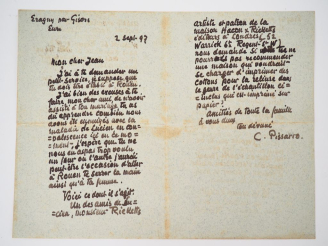 Eragny par Gisors
Eure
2 Sept. 97
Mon cher Jean
J'ai à te demander un
petit service, je suppose que
tu dois être à Rouen.
J'ai bien des excuses à te
faire, mon cher ami, de n'avoir
assisté à ton mariage, tu as
dû apprendre combien nous
avons été ennuyés avec la
maladie de Lucien, en con-
valescence ici en ce mo-
ment, j'espère que tu ne
nous en auras pas voulu,
un jour ou l'autre j'aurai
peut-être l'occasion d'aller
à Rouen te serrer la main
ainsi qu'à ta femme.
Voici ce dont il s'agit.
Un des amis de Lu-
cien, monsieur Ricketts
artiste et patron de la
maison Hacon & Ricketts
éditeurs à Londres, 52
Warwick St. Regent St. W.
nous demande si tu ne
pourrais pas recommander
une maison qui voudrait
se charger d'imprimer des
cottons pour la reliure dans
le genre de l'échantillon ci
inclus qui est imprimé sur
papier!
Amitiés de toute la famille
à vous deux
Ton dévoué
C. Pissarro.